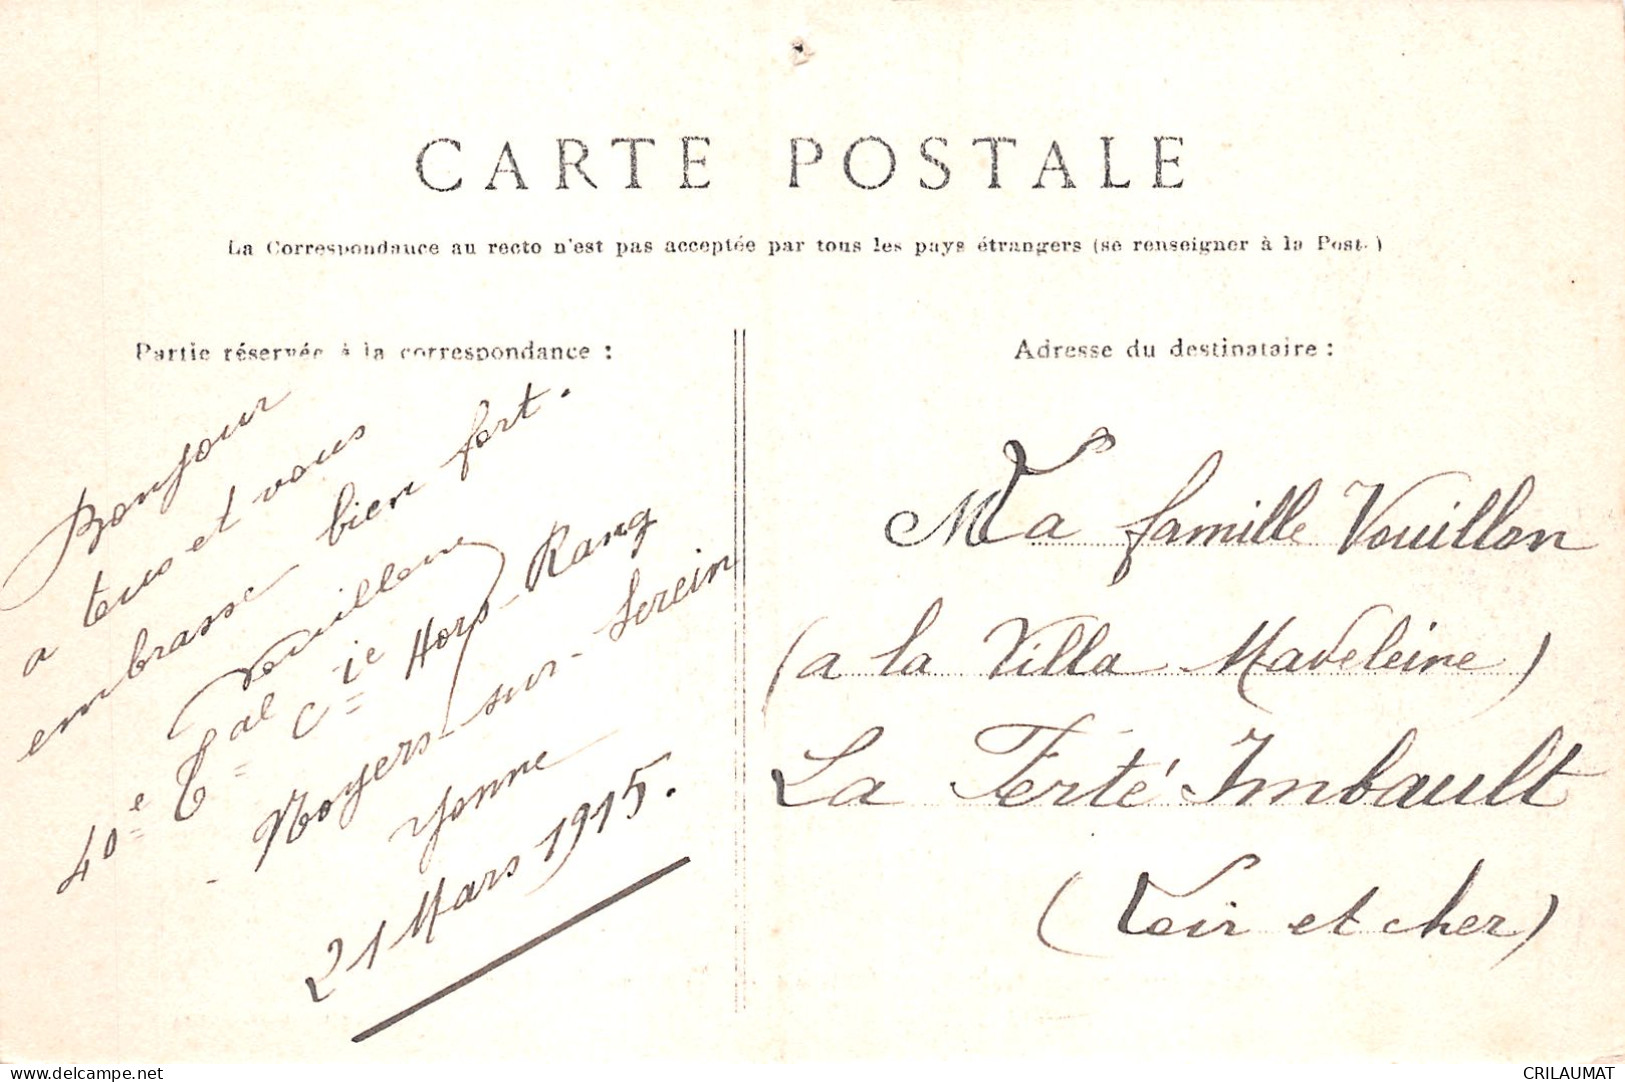 CARTE POSTALE
La Correspondance au recto n'est pas acceptée par tous les pays étrangers (se renseigner à la Post.)
Partie réservée à la correspondance :
Bonjour
a tous et vous
embrasse bien fort.
Vouillon
40e Cie Hors-Rang
Noyers-sur-Serein
Yonne
21 Mars 1915.
Adresse du destinataire :
Ma famille Vouillon
(a la Villa Madeleine)
La Ferté Imbault
(Loir et cher)
CRILAUMAT